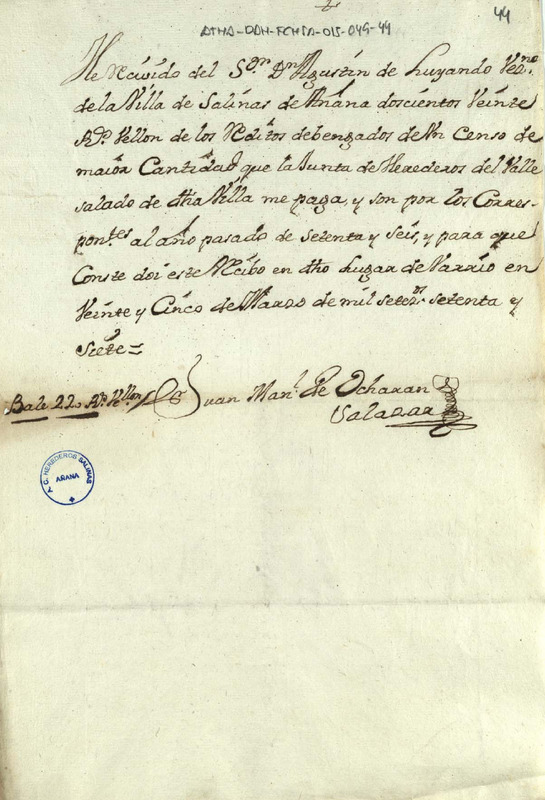 44
ATHA-DAH-FCHSA-015-049-44
He Recivido del S.or D.n Agustin de Luyando Vez.no
de la Villa de Salinas de Añana doscientos Veinte
R.s Vellon de los Reditos debengados de Un Censo de
maior Cantidad que la Junta de Herederos del Valle
salado de dha Villa me paga, y son por los Corres-
pon.tes al año pasado de setenta y seis, y para que
Conste doi este Recibo en dho Lugar de Varrio en
Veinte y Cinco de Marzo de mil setez.os setenta y
siete=
Bale 220 R.s Vellon
Juan Man.l de Ocharan
Salazar
C. HEREDEROS SALINAS
AÑANA